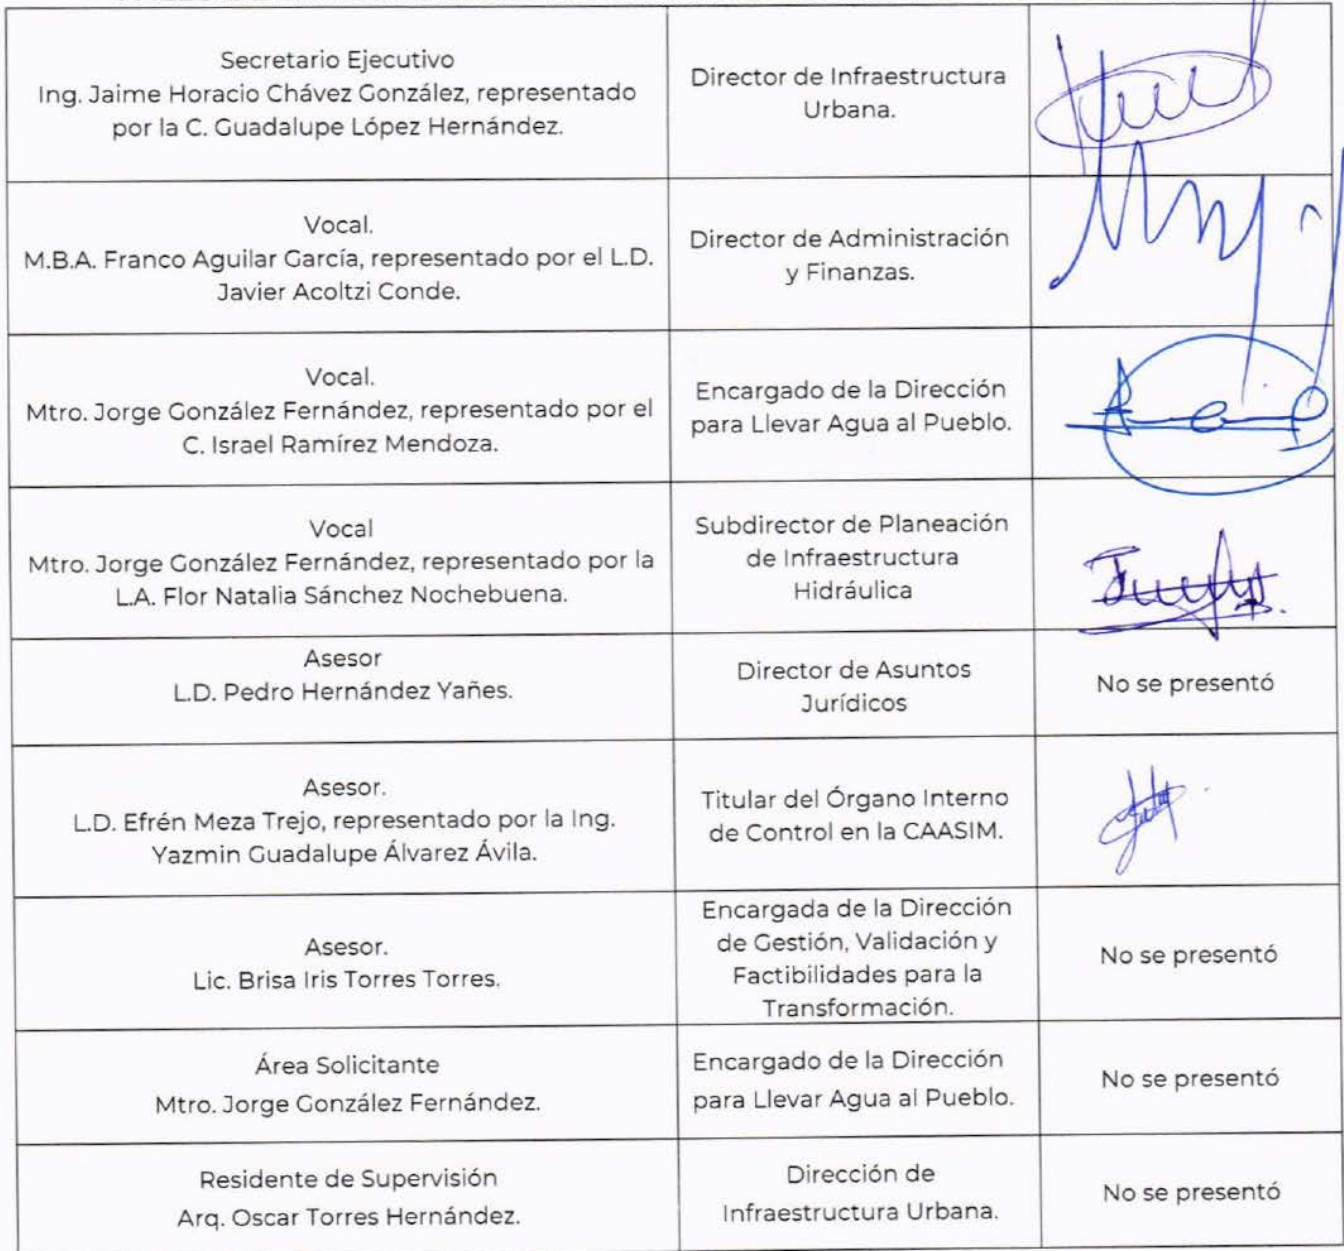 Secretario Ejecutivo
Ing. Jaime Horacio Chávez González, representado
por la C. Guadalupe López Hernández.
Director de Infraestructura
Urbana.
Vocal.
M.B.A. Franco Aguilar García, representado por el L.D.
Javier Acoltzi Conde.
Director de Administración
y Finanzas.
Vocal.
Mtro. Jorge González Fernández, representado por el
C. Israel Ramírez Mendoza.
Encargado de la Dirección
para Llevar Agua al Pueblo.
Vocal
Mtro. Jorge González Fernández, representado por la
L.A. Flor Natalia Sánchez Nochebuena.
Subdirector de Planeación
de Infraestructura
Hidráulica
Asesor
L.D. Pedro Hernández Yañes.
Director de Asuntos
Jurídicos
No se presentó
Asesor.
L.D. Efrén Meza Trejo, representado por la Ing.
Yazmin Guadalupe Álvarez Ávila.
Titular del Órgano Interno
de Control en la CAASIM.
Asesor.
Lic. Brisa Iris Torres Torres.
Encargada de la Dirección
de Gestión, Validación y
Factibilidades para la
Transformación.
No se presentó
Área Solicitante
Mtro. Jorge González Fernández.
Encargado de la Dirección
para Llevar Agua al Pueblo.
No se presentó
Residente de Supervisión
Arq. Oscar Torres Hernández.
Dirección de
Infraestructura Urbana.
No se presentó